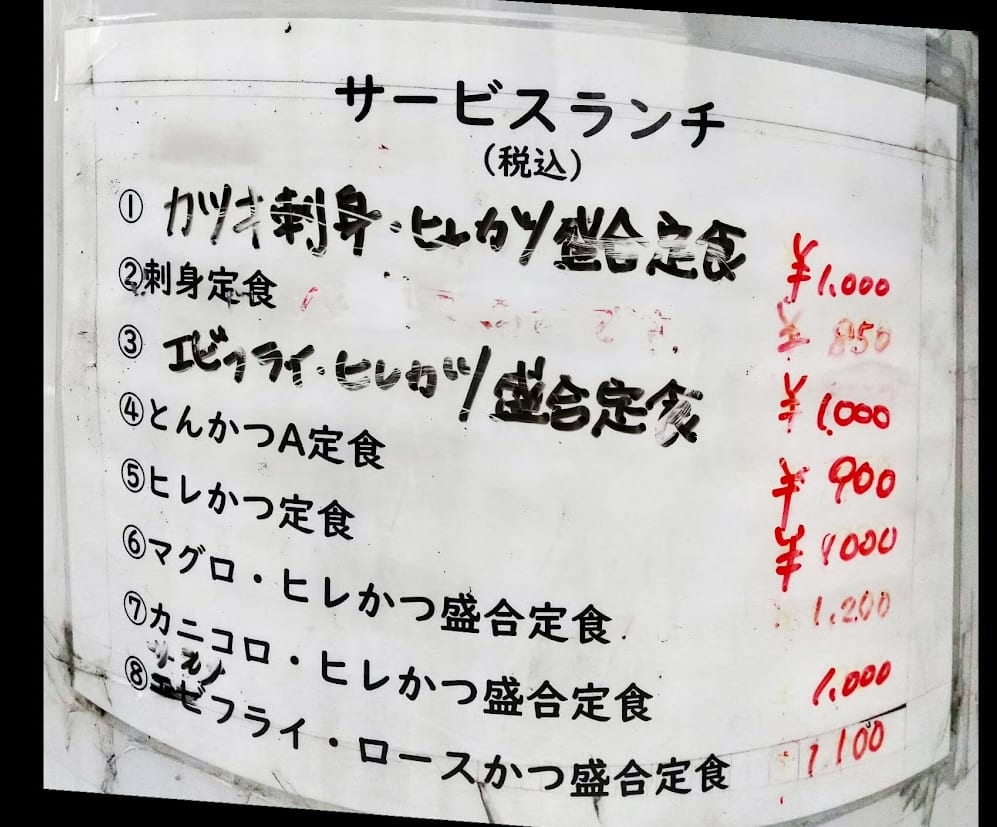 サービスランチ
(税込)
① カツオ刺身・ヒレカツ盛合定食 ¥1.000
②刺身定食 ¥850
③ エビフライ・ヒレカツ盛合定食 ¥1.000
④とんかつA定食 ¥900
⑤ヒレかつ定食 ¥1000
⑥マグロ・ヒレかつ盛合定食 1.200
⑦カニコロ・ヒレかつ盛合定食 1.000
⑧エビフライ・ロースかつ盛合定食 1100